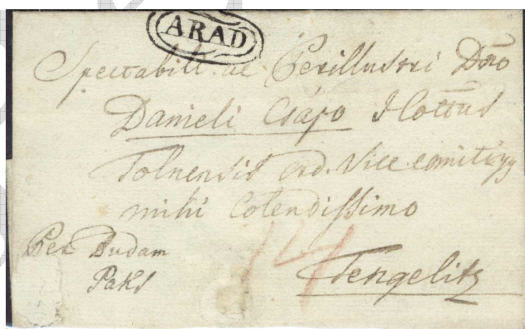 ARAD
Spectabili ac Perillustri Dno
Danieli Csápo I. Cottus
Tolnensis ord. Vice comiti
mihi Colendissimo
14
Per Budam
Paks
Tengelitz